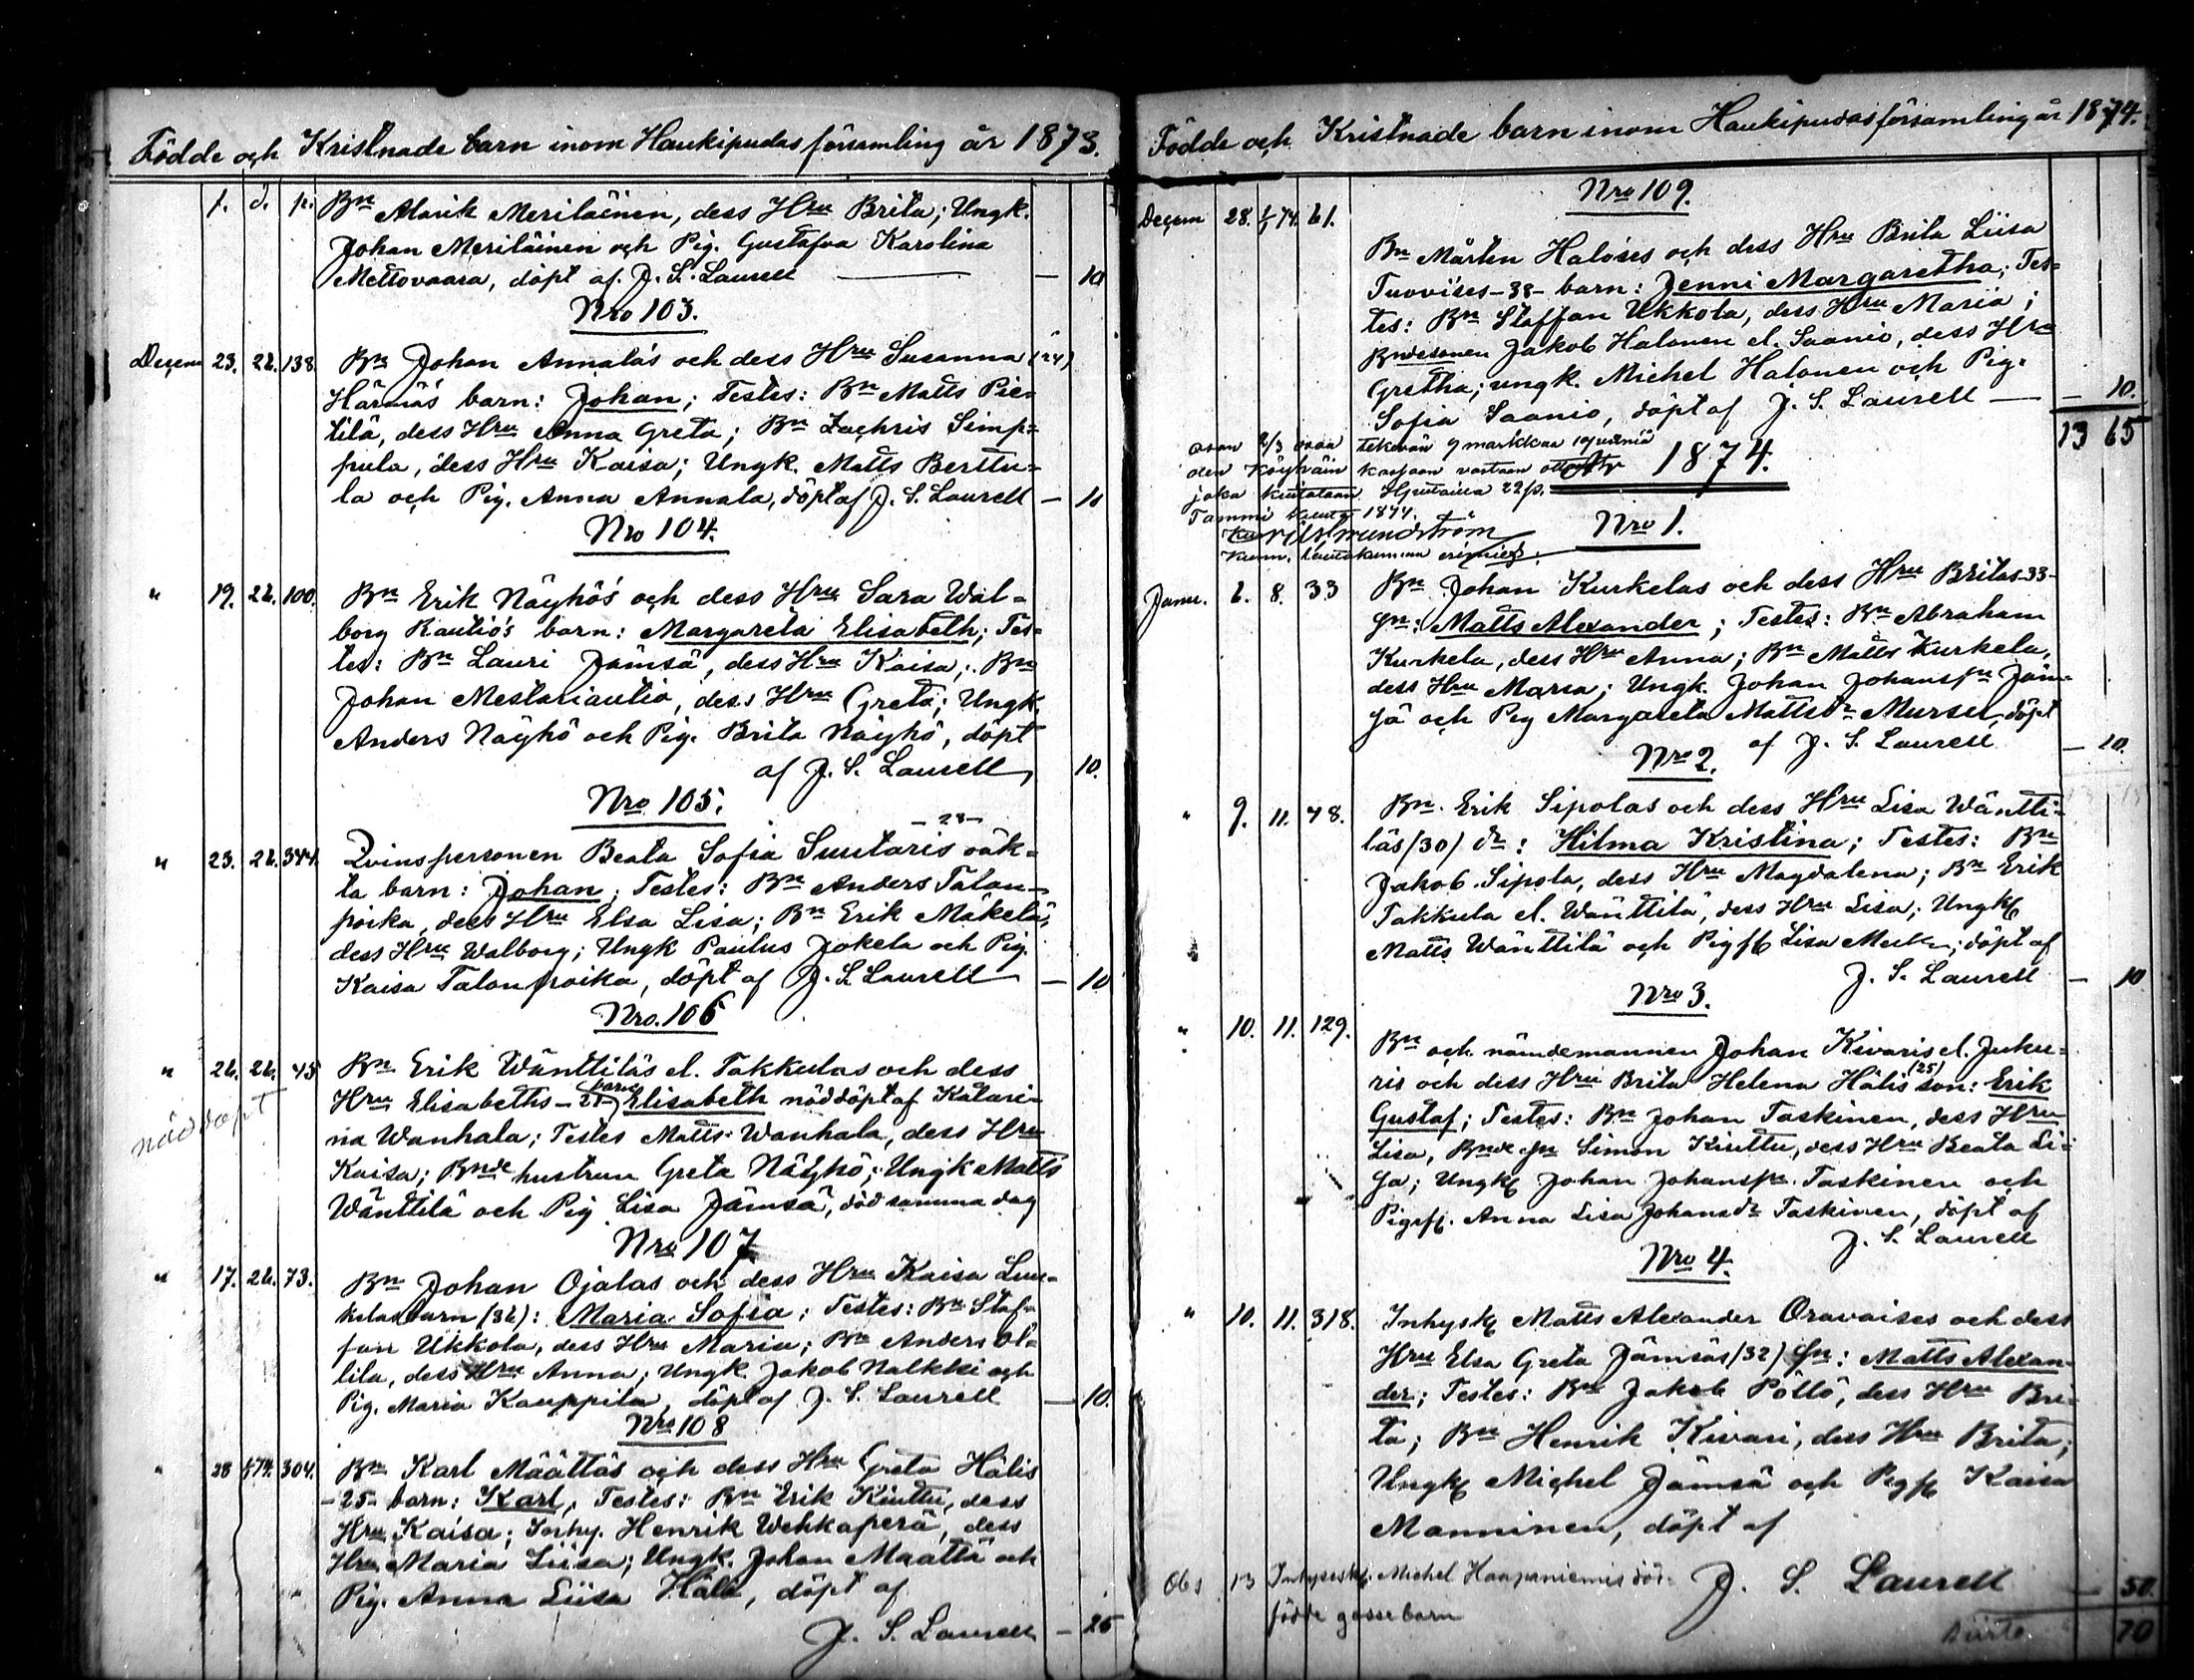 Födde och Kristnade barn inom Haukipudas församling år 1873.
f. d. p. Bn Marik Meriläinen, dess Hru Brita; Ungk.
Johan Meriläinen och Pig. Gustafva Karolina
Mettovaara, döpt af J. S. Laurell — 10
Nro 103.
Decem 23. 26. 138 Bn Johan Annalas och dess Hru Susanna (24)
Härmäs barn: Johan; Testes: Bn Matts Pie-
tilä, dess Hru Anna Greta; Bn Zachris Simp-
pula, dess Hru Kaisa; Ungk. Matts Berttu-
la och Pig. Anna Annala, döpt af J. S. Laurell — 10
Nro 104.
" 19. 26. 100. Bn Erik Näyhö's och dess Hru Sara Wal-
borg Rautio's barn: Margareta Elisabeth; Tes-
tes: Bn Lauri Jämsä, dess Hru Kaisa; Bn
Johan Mestariautio, dess Hru Greta; Ungk.
Anders Näyhö och Pig. Brita Näyhö, döpt
af J. S. Laurell, 10.
Nro 105.
-28-
" 23. 26. 344. Qvinspersonen Beata Sofia Suutaris oäk-
ta barn: Johan; Testes: Bn Anders Talon-
poika, dess Hru Elsa Lisa; Bn Erik Mäkelä,
dess Hru Walborg; Ungk Paulus Jokela och Pig.
Kaisa Talonpoika, döpt af J. S. Laurell — 10
Nro. 106
" 26. 26. 45 Bn Erik Wänttiläs el. Takkulas och dess
Hru Elisabeths barn Elisabeth nöddöpt af Katari-
nöddöpt
na Wanhala; Testes Matts Wanhala, dess Hru
Kaisa; Bnde hustrun Greta Näyhö; Ungk Matts
Wänttilä och Pig Lisa Jämsä, död samma dag
Nro 107
" 17. 26. 73. Bn Johan Ojalas och dess Hru Kaisa Luu-
kelas barn (36): Maria Sofia; Testes: Bn Staf-
fan Ukkola, dess Hru Maria; Bn Anders Ol-
lila, dess Hru Anna; Ungk Jakob Nalkki och
Pig. Maria Kauppila, döpt af J. S. Laurell — 10.
Nro 108
" 28 1/1 74. 304. Bn Karl Määttäs och dess Hru Greta Hälis
-25- barn: Karl; Testes: Bn Erik Kiuttu, dess
Hru Kaisa; Inhy. Henrik Wehkaperä, dess
Hru Maria Liisa; Ungk. Johan Määttä och
Pig. Anna Liisa Häli, döpt af
J. S. Laurell — 25
Födde och Kristnade barn inom Haukipudas församling år 1874.
Nro 109.
Decem 28. 1/1 74. 61.
Bn Mårten Halóses och dess Hru Brita Liisa
Tuovises -38- barn: Jenni Margaretha; Tes-
tes: Bn Staffan Ukkola, dess Hru Maria;
Bndesonen Jakob Halonen el. Saanio, dess Hru
Gretha; ungk. Michel Halonen och Pig.
Sofia Saanio, döpt af J. S. Laurell — 10.
13 65
osan 2/3 osaa tekevän 9 markkaa 10 penniä
den köyhäin kassaan vastaan
joka kuitataan. Hpudaissa 22 p.
Tammi kuuta 1874.
1874.
Nro 1.
Janu. 6. 8. 33 Bn Johan Kurkelas och dess Hru Britas -33-
sn: Matts Alexander; Testes: Bn Abraham
Kurkela, dess Hru Anna; Bn Matts Kurkela,
dess Hru Maria; Ungk. Johan Johanssn Jäm-
sä och Pig Margareta Mattsdr Mursu, döpt
af J. S. Laurell — 10.
Nro 2.
" 9. 11. 48. Bn. Erik Sipolas och dess Hru Lisa Wäntti-
läs (30) dr: Hilma Kristina; Testes: Bn
Jakob Sipola, dess Hru Magdalena; Bn Erik
Takkula el. Wänttilä, dess Hru Lisa; Ungk
Matts Wänttilä och Pig Lisa, döpt af
J. S. Laurell — 10
Nro 3.
" 10. 11. 129. Bn och nämdemannen Johan Kivaris el. Juku-
ris och dess Hru Brita Helena Hälis (25) son: Erik
Gustaf; Testes: Bn Johan Taskinen, dess Hru
Lisa, Bnde sn Simon Kiuttu, dess Hru Beata Li-
sa; Ungk Johan Johanssn Taskinen och
Pig. Anna Lisa Johansdr Taskinen, döpt af
J. S. Laurell
Nro 4.
" 10. 11. 318. Inhysk Matts Alexander Oravaises och dess
Hru Elsa Greta Jämsäs (32) sn: Matts Alexan-
der; Testes: Bn Jakob Pöllö, dess Hru Bri-
ta; Bn Henrik Kivari, dess Hru Brita;
Ungk Michel Jämsä och Pig Kaisa
Manninen, döpt af
Obs 13 Inhysesk. Michel Haapaniemis död- J. S. Laurell — 50.
födde gossebarn
Siirto 70